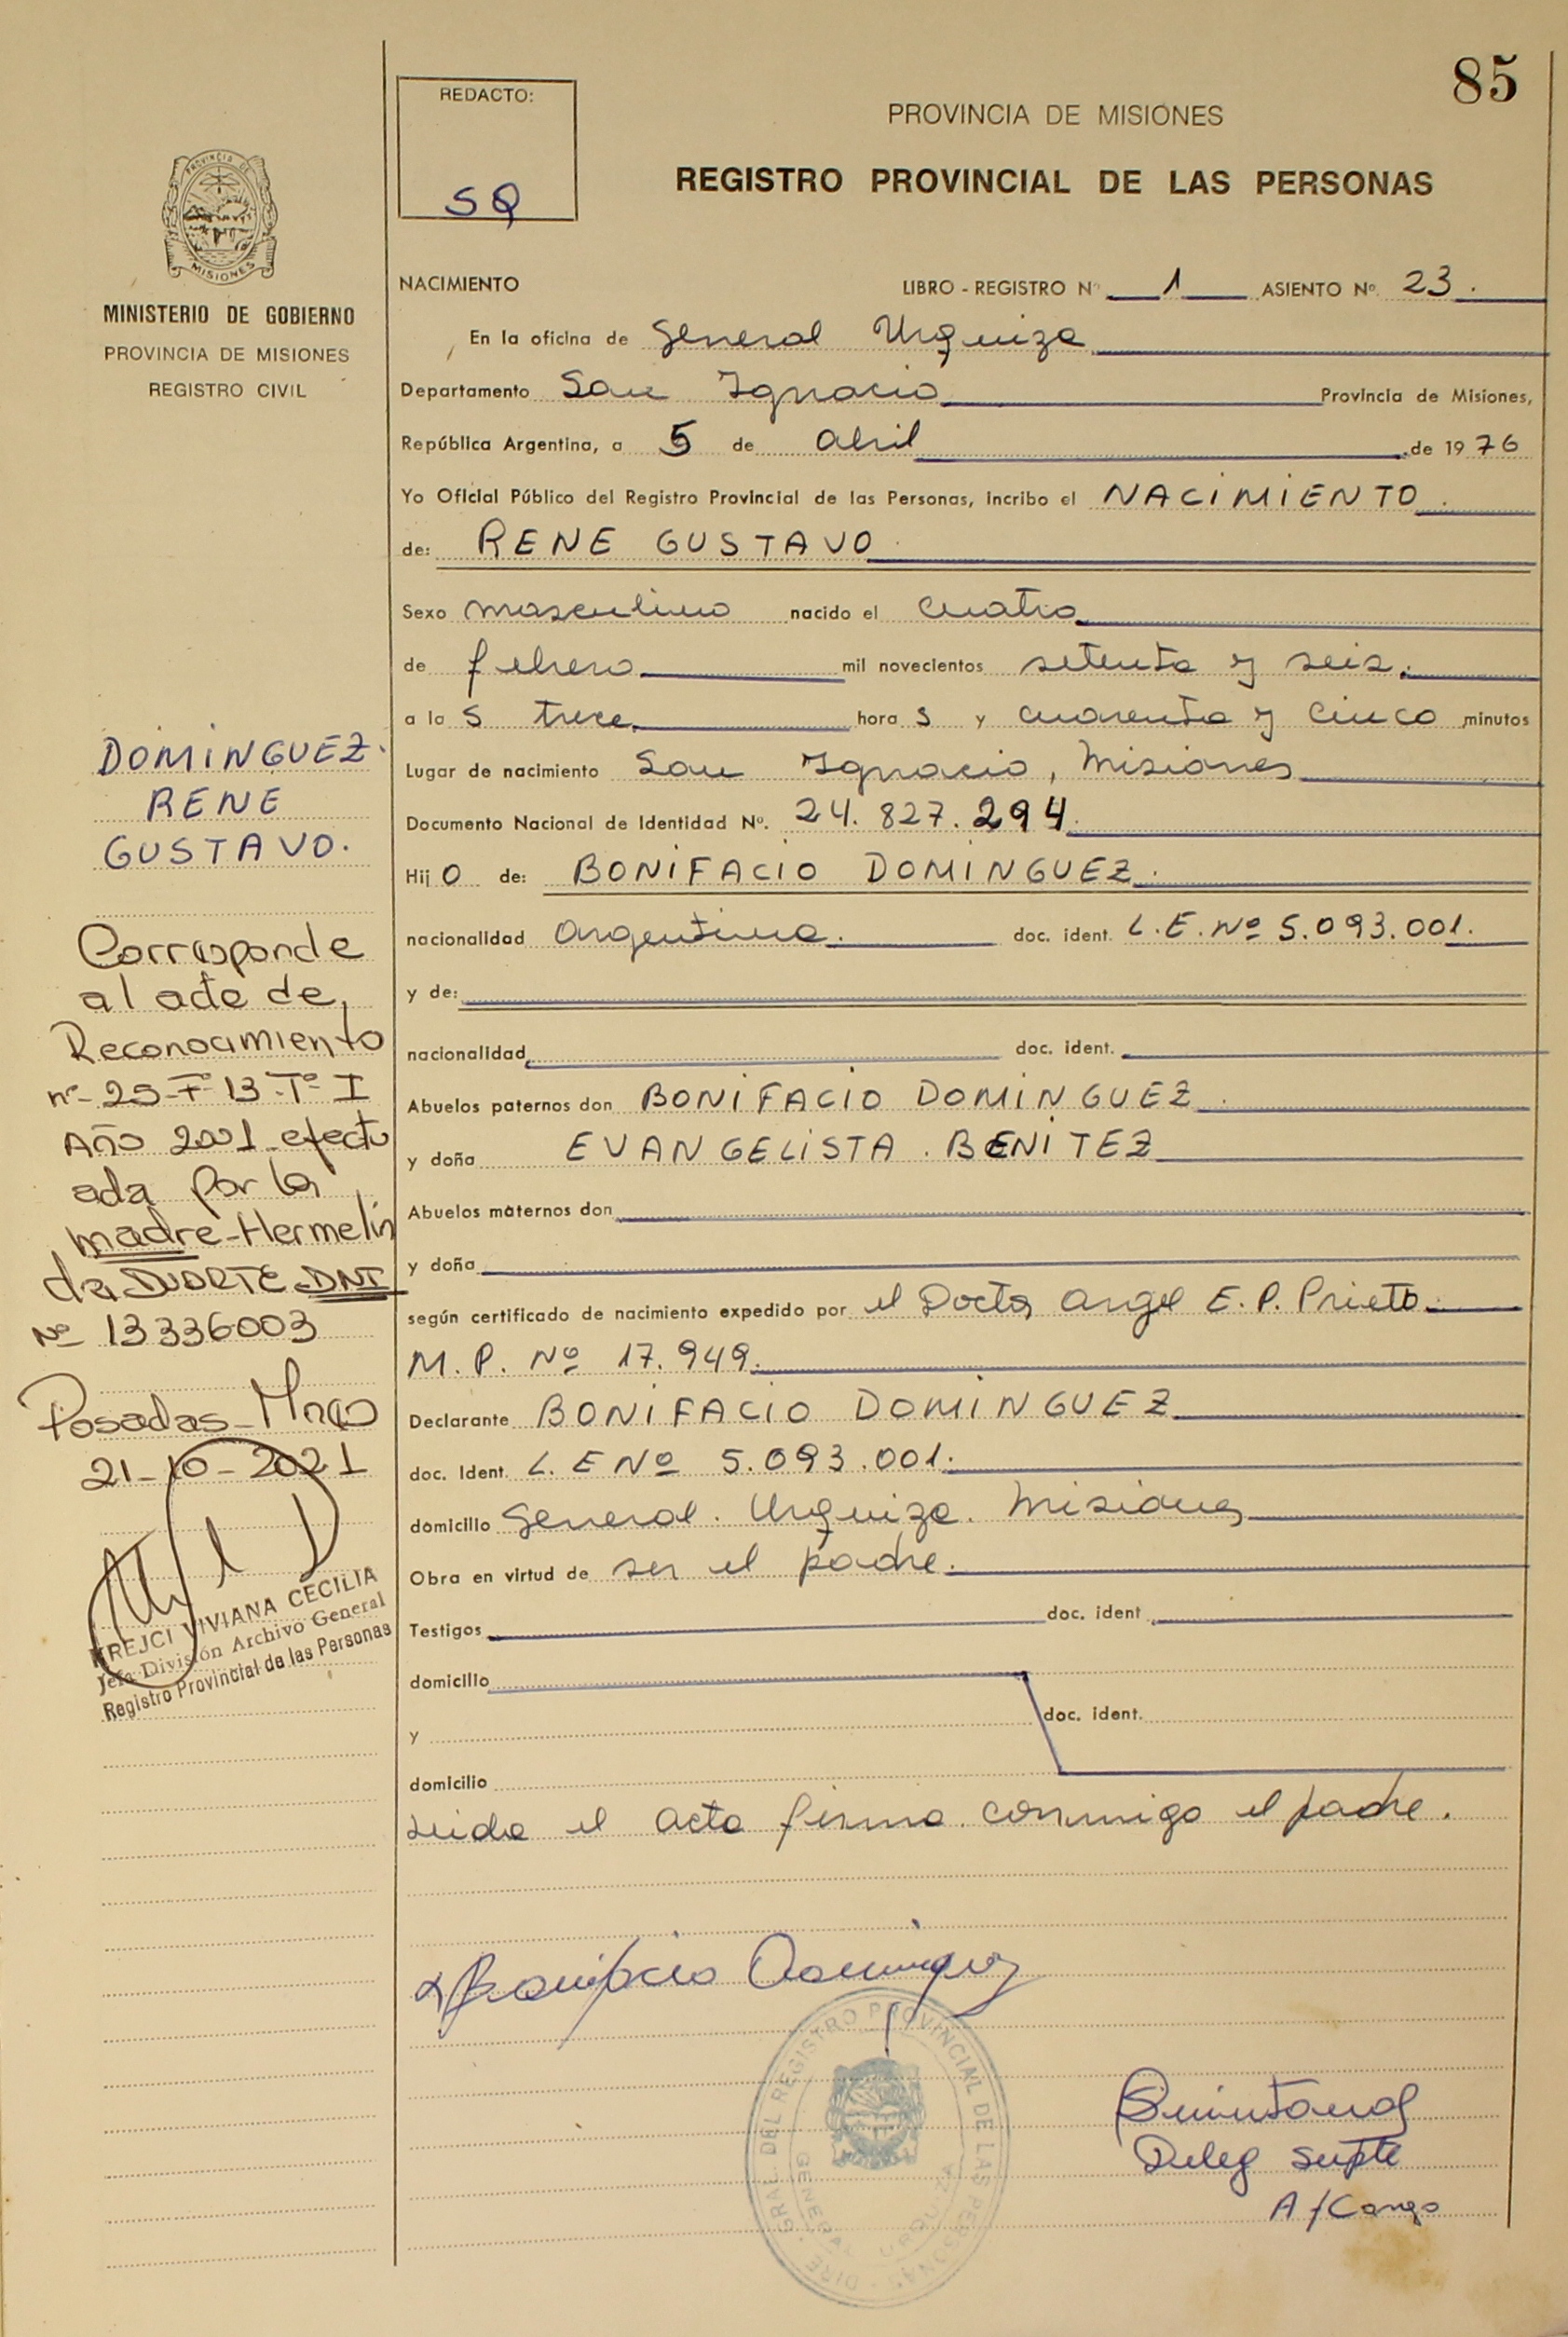 85
REDACTO:
SQ
PROVINCIA DE MISIONES
REGISTRO PROVINCIAL DE LAS PERSONAS
PROVINCIA DE
MISIONES
MINISTERIO DE GOBIERNO
PROVINCIA DE MISIONES
REGISTRO CIVIL
NACIMIENTO LIBRO - REGISTRO Nº 1 ASIENTO Nº 23.
En la oficina de General Urquiza
Departamento San Ignacio Provincia de Misiones,
República Argentina, a 5 de abril de 1976
Yo Oficial Público del Registro Provincial de las Personas, incribo el NACIMIENTO.
de: RENE GUSTAVO
Sexo masculino nacido el cuatro
de febrero mil novecientos setenta y seis.
a las trece horas y cuarenta y cinco minutos
Lugar de nacimiento San Ignacio, Misiones
Documento Nacional de Identidad Nº. 24.827.294.
Hijo de: BONIFACIO DOMINGUEZ.
nacionalidad argentina. doc. ident. L.E. Nº 5.093.001.
y de:
nacionalidad doc. ident.
Abuelos paternos don BONIFACIO DOMINGUEZ.
y doña EVANGELISTA. BENITEZ
Abuelos maternos don
y doña
según certificado de nacimiento expedido por el Doctor Angel E. P. Prieto.
M. P. Nº 17.949.
Declarante BONIFACIO DOMINGUEZ
doc. Ident. L. E Nº 5.093.001.
domicilio General. Urquiza. Misiones
Obra en virtud de ser el padre.
Testigos doc. ident
domicilio
y doc. ident.
domicilio
Leida el acta firma conmigo el padre.
Bonifacio Dominguez
DIRE. GRAL. DEL REGISTRO PROVINCIAL DE LAS PERSONAS
GENERAL URQUIZA
Quintana
Deleg Supte
A/Cargo
DOMINGUEZ.
RENE
GUSTAVO.
Corresponde
al acta de
Reconocimiento
nº 25 Fº 13 Tº I
Año 2001 efectu
ada por la
madre-Hermelin
da DUARTE DNI
Nº 13336003
Posadas-Mnes
21-10-2021
KREJCI VIVIANA CECILIA
Jefa División Archivo General
Registro Provincial de las Personas